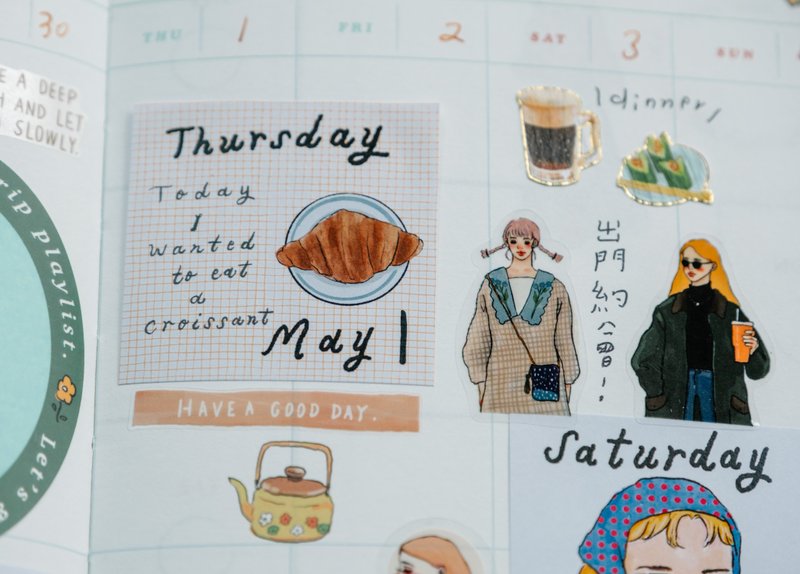 30
THU 1 FRI 2 SAT 3 SUN
E A DEEP
H AND LET
SLOWLY.
rip playlist.
Let's
Thursday
Today
I
wanted
to eat
a
croissant
May 1
HAVE A GOOD DAY.
dinner
出門約會!
Saturday